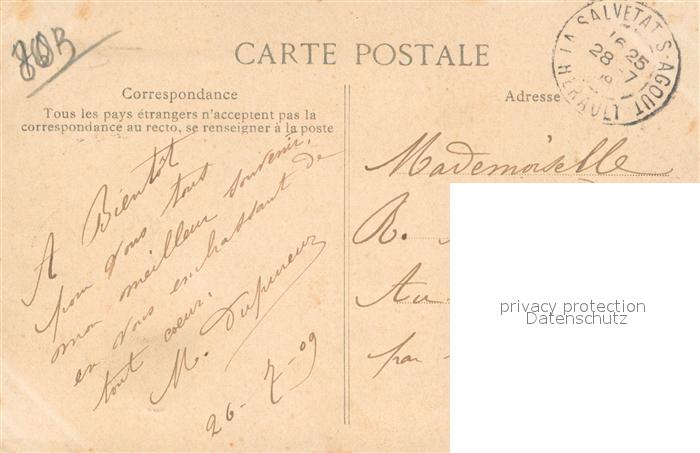 CARTE POSTALE
LA SALVETAT S. AGOUT
16 25
28 - 7
HÉRAULT
Correspondance
Tous les pays étrangers n'acceptent pas la
correspondance au recto, se renseigner à la poste
Adresse
A Bientôt
pour vous tous
mon meilleur souvenir,
en vous embrassant de
tout cœur.
M.
26-7-09
Mademoiselle
R.
Au
par
privacy protection
Datenschutz